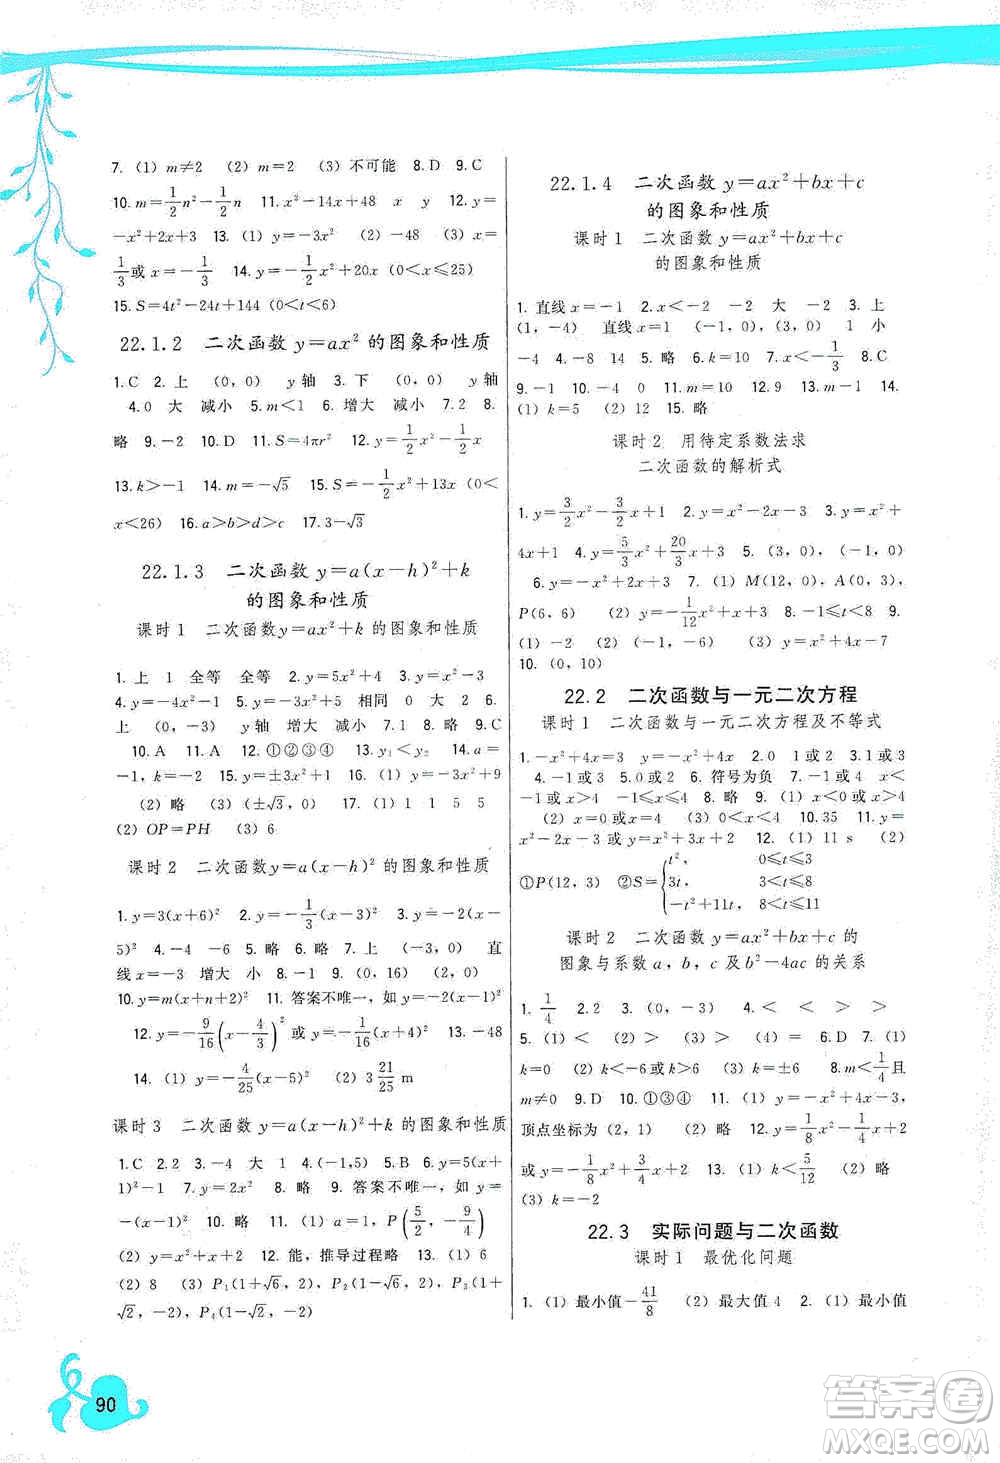 7. (1) m≠2 (2) m=2 (3) 不可能 8. D 9. C
10. m=1/2n²−1/2n 11. x²−14x+48 x y 12. y=
−x²+2x+3 13. (1) y=−3x² (2) −48 (3) x=
1/3或x=−1/3 14. y=−1/2x²+20x (0<x≤25)
15. S=4t²−24t+144 (0<t≤6)
22.1.2 二次函数 y=ax² 的图象和性质
1. C 2. 上 (0, 0) y 轴 3. 下 (0, 0) y 轴
4. 0 大 减小 5. m<1 6. 增大 减小 7. 2 8.
略 9. −2 10. D 11. S=4πr² 12. y=1/2x²−1/2x
13. k>−1 14. m=−√5 15. S=−1/2x²+13x (0<
x<26) 16. a>b>d>c 17. 3−√3
22.1.3 二次函数 y=a(x−h)²+k
的图象和性质
课时 1 二次函数y=ax²+k 的图象和性质
1. 上 1 全等 全等 2. y=5x²+4 3. y=−x²−2
4. y=−4x²−1 5. y=−4x²+5 相同 0 大 2 6.
上 (0, −3) y 轴 增大 减小 7. 1 8. 略 9. C
10. A 11. A 12. ①②③④ 13. y₁<y₂ 14. a=
−1 15. (1) y=−3x²+1 (2) 略 16. (1) y=−x²+9
(2) 略 (3) (±√3, 0) 17. (1) 1 1 5 5
(2) OP=PH (3) 6
课时 2 二次函数y=a(x−h)² 的图象和性质
1. y=3(x+6)² 2. y=−1/3(x−3)² 3. y=−2(x−
5)² 4. −4 −6 5. 略 6. 略 7. 上 (−3, 0) 直
线 x=−3 增大 小 8. (0, 16) 9. (−2, 0)
10. y=m(x+n+2)² 11. 答案不唯一, 如y=2(x−1)²
12. y=−9/16(x−4/3)² 或 y=−1/16(x+4)² 13. −48
14. (1) y=−4/25(x−5)² (2) 3 21/25 m
课时 3 二次函数y=a(x−h)²+k 的图象和性质
1. C 2. 2 3. −4 大 1 4. (−1, 5) 5. B 6. y=5(x+
1)²−1 7. y=2x² 8. 略 9. 答案不唯一, 如 y=
−(x−1)² 10. 略 11. (1) a=1, P(5/2, −9/4)
(2) y=x²+x+2 12. 能, 推导过程略 13. (1) 6
(2) 8 (3) P₁(1+√6, 2), P₂(1−√6, 2), P₃(1+
√2, −2), P₄(1−√2, −2)
22.1.4 二次函数 y=ax²+bx+c
的图象和性质
课时 1 二次函数 y=ax²+bx+c
的图象和性质
1. 直线 x=−1 2. x<−2 −2 大 −2 3. 上
(1, −4) 直线 x=1 (−1, 0), (3, 0) 1 小
−4 4. −8 14 5. 略 6. k=0 7. x>−1/3 8. C
9. −1 10. −4 11. m=8 12. 9 13. −1 14.
(1) k=5 (2) 12 15. 略
课时 2 用待定系数法求
二次函数的解析式
1. y=3/2x²−3/2x+1 2. y=x²−2x−3 3. y=1/2x²−
4x+1 4. y=5/3x²+20/3x−5 5. (3, 0), (−1, 0)
6. y=−x²+2x+3 7. (1) M(12, 0), A(0, 3),
P(6, 6) (2) y=−1/12x²+x+3 8. −1≤t<8 9.
(1) −2 (2) (−1, −6) (3) y=x²+4x−7
10. (0, 10)
22.2 二次函数与一元二次方程
课时 1 二次函数与一元二次方程及不等式
1. −x²+4x=3 x²−4x=0 2. 1 或 2 3. 1 或 3
4. −1 或 3 5. 0 或 2 6. 符号为负 7. x=4 x<
−1或x>4 −1≤x≤4 8. 略 9. (1) x≤1或x≥3
(2) x=0 或 x=4 (3) 0<x<4 10. 35 11. y=
−x²−2x−3或 y=x²+3x+2 12. (1) 11 s (2)
①P(12, 3) ②S={t², 0≤t≤3
3t, 3<t≤8
−t²+11t, 8<t≤11
课时 2 二次函数 y=ax²+bx+c 的
图象与系数 a, b, c 及 b²−4ac 的关系
1. 1/4 2. 2 3. (0, −3) 4. < < > >
5. (1) < (2) > (3) > (4) = 6. D 7. (1)
k=0 (2) k<−6 或 k>6 (3) k=±6 8. k<1/4且
m≠0 9. D 10. ①③④ 11. (1) y=x²−4x+5
顶点坐标为 (2, 1) (2) 略 12. y=1/8x²−1/4x+2
或 y=−1/8x²+3/4x+2 13. (1) k<5/12 (2) 略
(3) k=−2
22.3 实际问题与二次函数
课时 1 最优化问题
1. (1) 最小值−41/8 (2) 最大值 4 2. (1) 最小值
90
答案圈
MXQE.COM